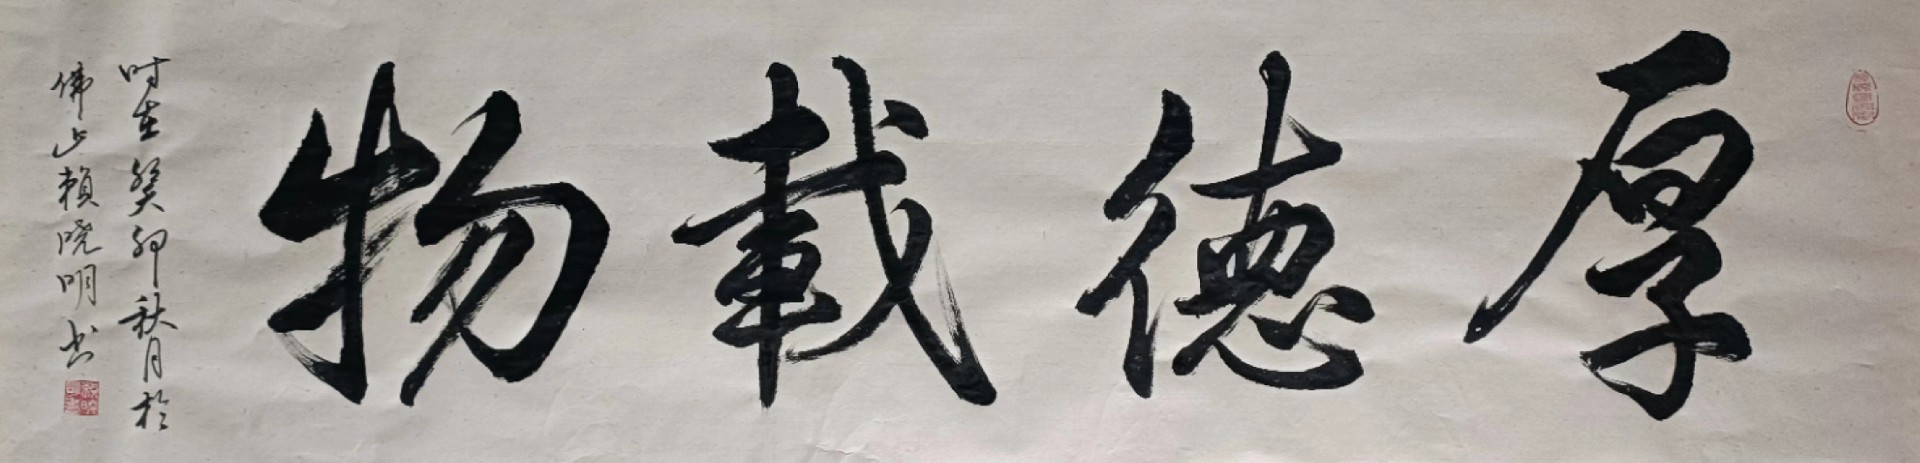 厚德载物
时在癸卯秋月於
佛山赖晓明书